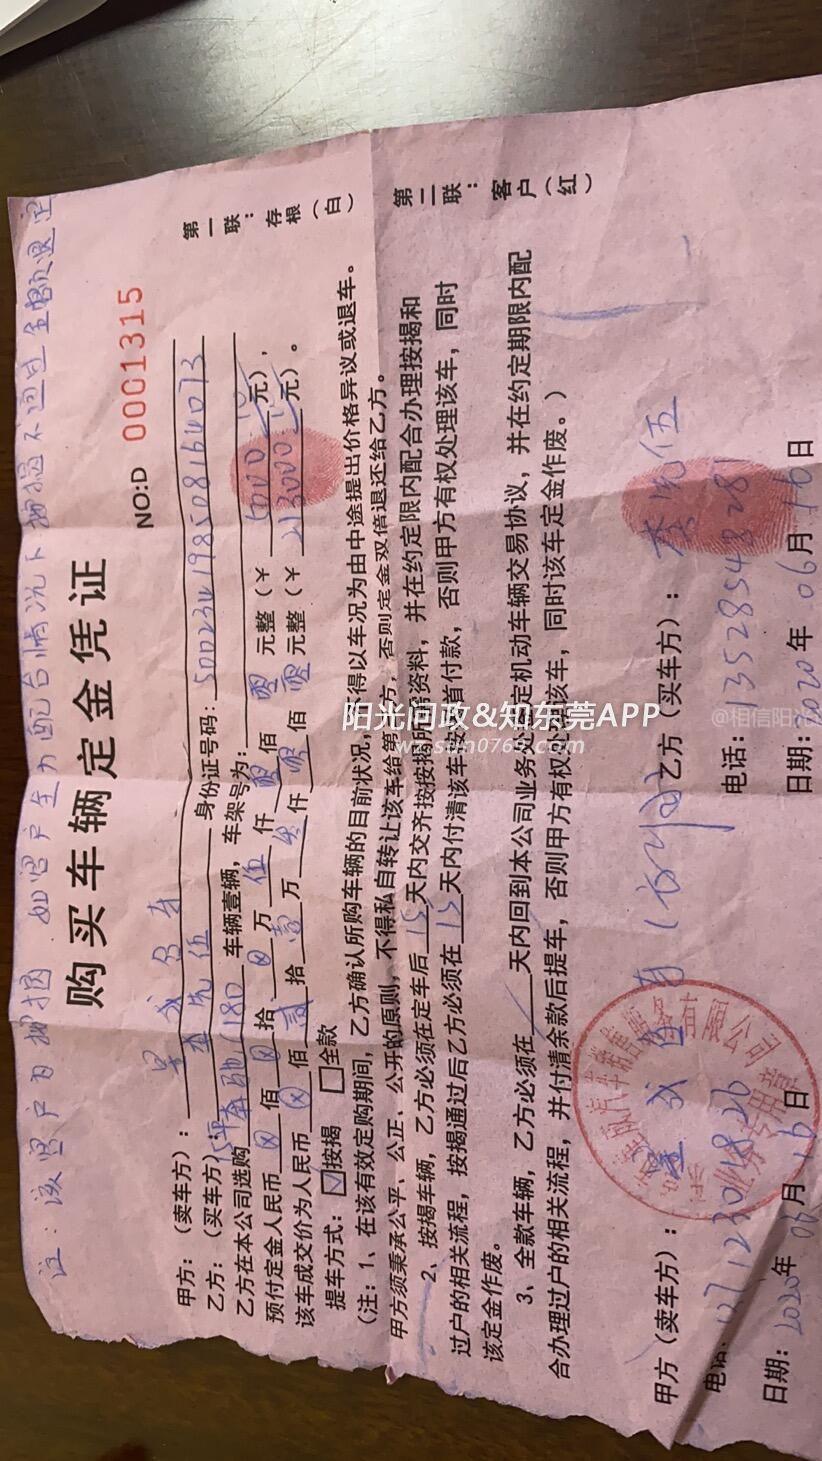 注：该客户为按揭．如客户全力配合情况下按揭不通过全额退定
购买车辆定金凭证
NO:D 0001315
甲方：（卖车方）：
乙方：（买车方）： 李先伍 身份证号码：500234198508164073
乙方在本公司选购 15年奔驰C180 车辆壹辆，车架号为：
预付定金人民币 ⊗ 佰 ⊗ 拾 ⊗ 万 伍 仟 零 佰 零 元整（￥ 5000 元），
该车成交价为人民币 ⊗ 佰 贰 拾 壹 万 叁 仟 零 佰 零 元整（￥ 213000 元）。
提车方式：☑按揭 □全款
（注：1、在该有效定购期间，乙方确认所购车辆的目前状况，不得以车况为由中途提出价格异议或退车。
甲方须秉承公平、公正、公开的原则，不得私自转让该车给第三方，否则定金双倍退还给乙方。
2、按揭车辆，乙方必须在定车后 15 天内交齐按揭所需资料，并在约定限内配合办理按揭和
过户的相关流程，按揭通过后乙方必须在 15 天内付清该车按揭首付款，否则甲方有权处理该车，同时
该定金作废。
3、全款车辆，乙方必须在 / 天内回到本公司业务处签定机动车辆交易协议，并在约定期限内配
合办理过户的相关流程，并付清余款后提车，否则甲方有权处理该车，同时该车定金作废。）
第一联：存根（白）
第二联：客户（红）
甲方（卖车方）：
乙方（买车方）： 李先伍
电话：
电话：13528548281
日期：2020年06月16日
日期：2020年06月16日
业务专用章
阳光问政&知东莞APP
www.sun0769.com
@相信阳光